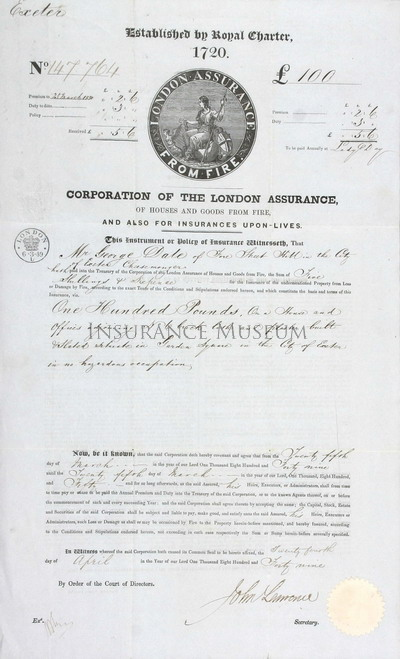 Exeter
Established by Royal Charter,
1720.
No 147764
£ 100
LONDON ASSURANCE
FROM FIRE.
Premium to
Duty to
Policy
Received £ 5.6
Premium
Duty
£ 5.6
To be paid Annually at Lady Day
CORPORATION OF THE LONDON ASSURANCE,
OF HOUSES AND GOODS FROM FIRE,
AND ALSO FOR INSURANCES UPON LIVES.
LONDON
This Instrument or Policy of Insurance Witnesseth, That
Mr George Date of Fore Street Hill in the City
of Exeter Cheesemonger
hath paid into the Treasury of the Corporation of the London Assurance of Houses and Goods from Fire, the Sum of Five
Shillings & Sixpence for the Insurance of the undermentioned Property from Loss
or Damage by Fire, according to the exact Tenor of the Conditions and Stipulations endorsed hereon, and which constitute the basis and terms of this
Insurance, viz.
One Hundred Pounds. On a House and
Offices built
& slated situate in Square in the City of Exeter
in no hazardous occupation
INSURANCE MUSEUM
Now, be it known, that the said Corporation doth hereby covenant and agree that from the Twenty fifth
day of March in the year of our Lord One Thousand Eight Hundred and Forty nine
until the Twenty fifth day of March in the year of our Lord One Thousand, Eight Hundred,
and Fifty and for so long afterwards, as the said Assured, his Heirs, Executors, or Administrators, shall from time
to time pay or cause to be paid the Annual Premium and Duty into the Treasury of the said Corporation, or to the known Agents thereof, on or before
the commencement of each and every succeeding Year: and the said Corporation shall agree thereto by accepting the same; the Capital, Stock, Estate
and Securities of the said Corporation shall be subject and liable to pay, make good, and satisfy unto the said Assured, his Heirs, Executors or
Administrators, such Loss or Damage as shall or may be occasioned by Fire to the Property herein-before mentioned, and hereby Insured, according
to the Conditions and Stipulations endorsed hereon, not exceeding in each case respectively the Sum or Sums herein-before severally specified.
In Witness whereof the said Corporation hath caused its Common Seal to be hereto affixed, the Twenty fourth
day of April in the Year of our Lord One Thousand Eight Hundred and Forty nine
By Order of the Court of Directors.
John Laurence
Secretary.
Exd.